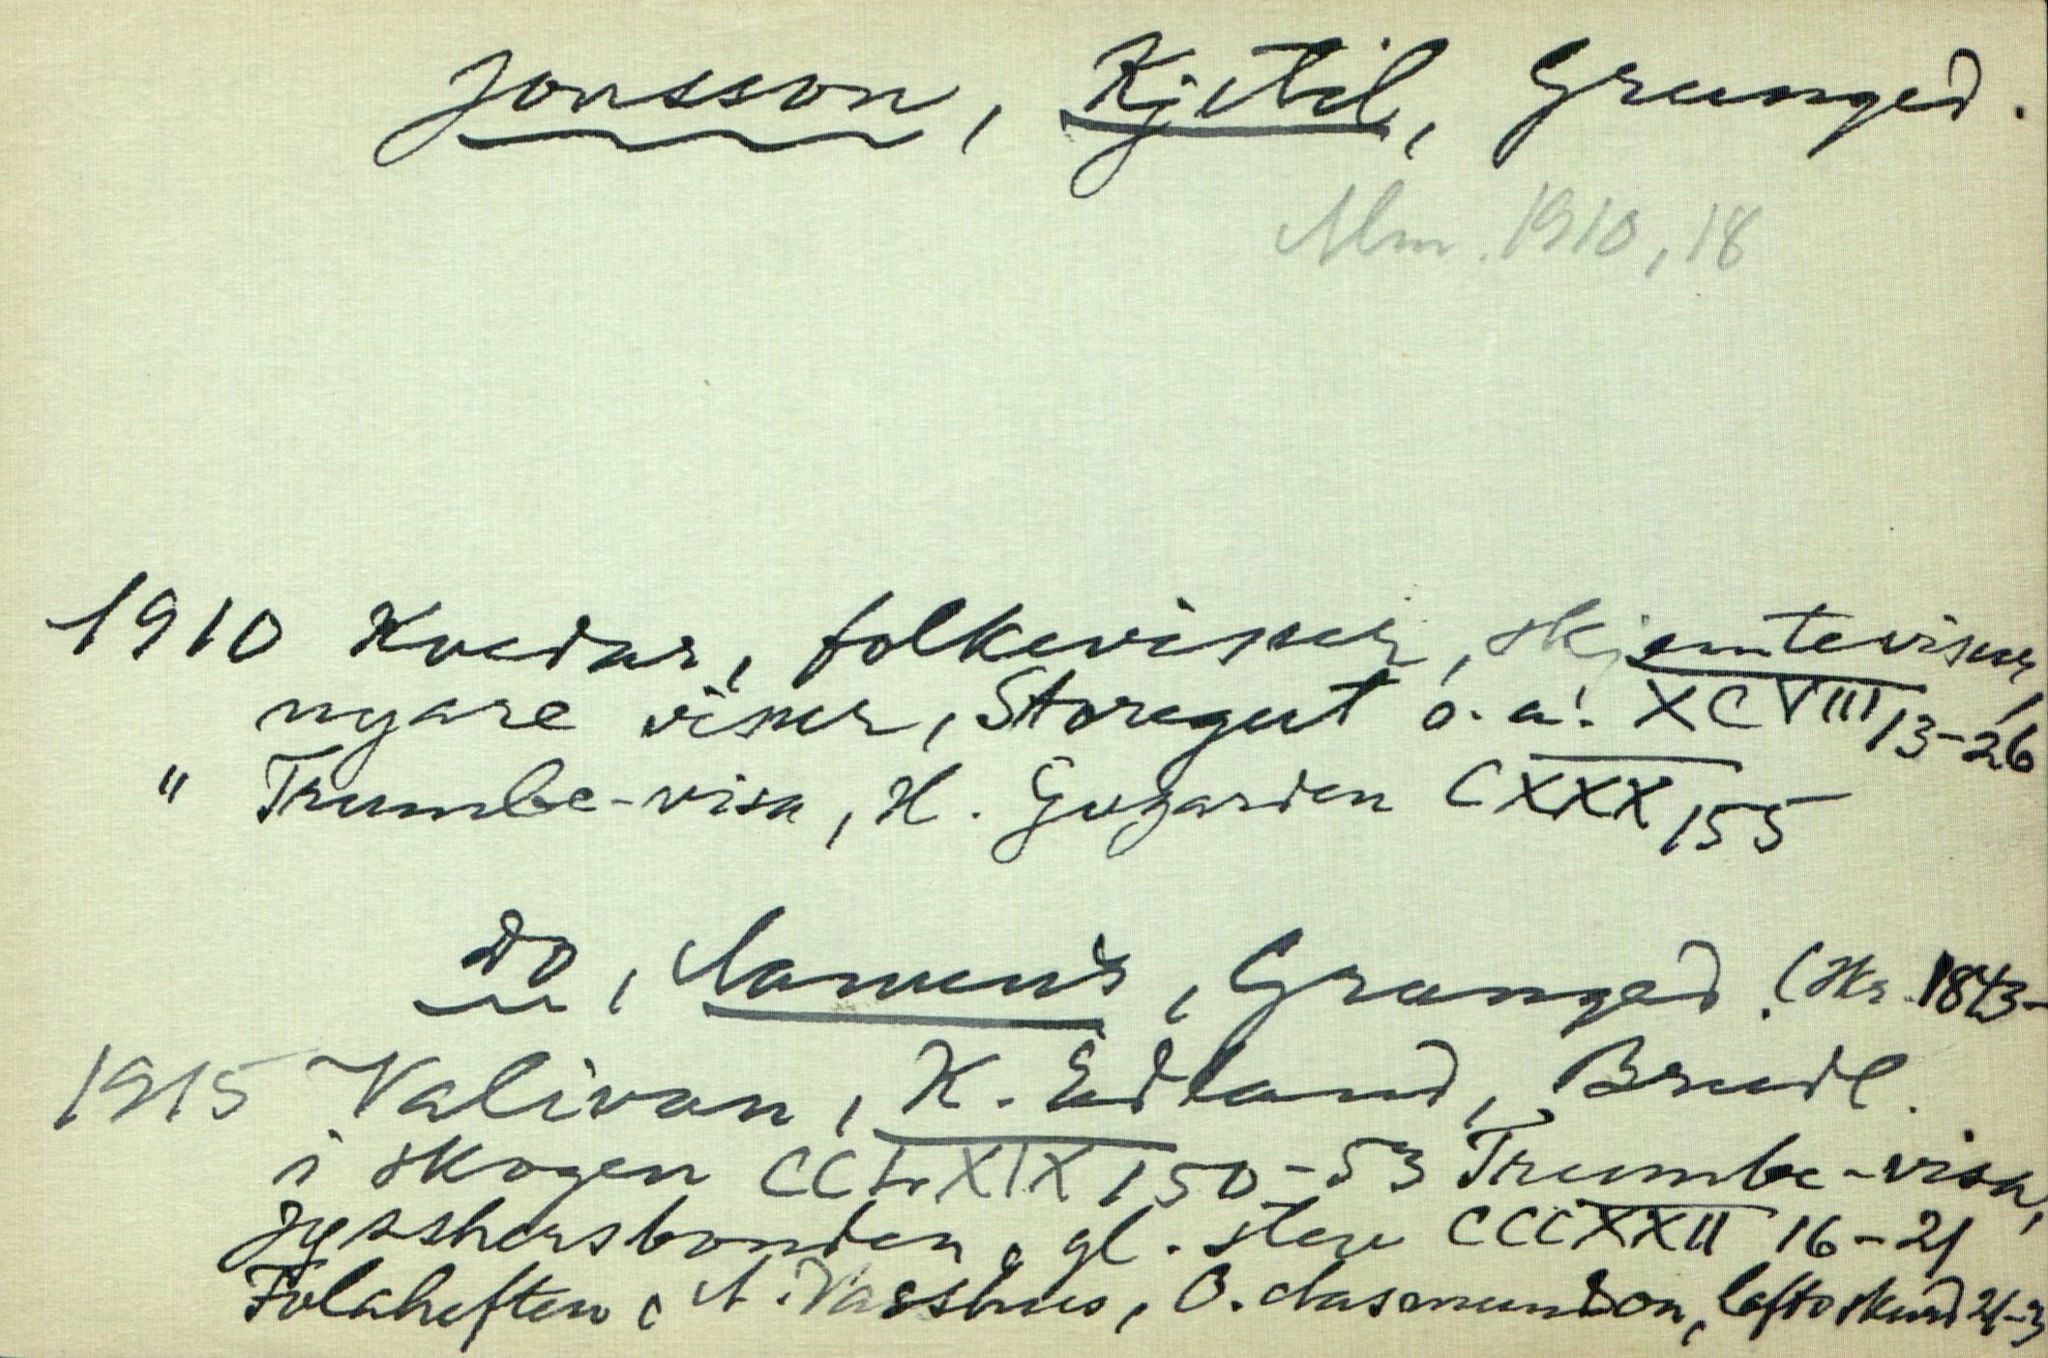 Jonsson, Kjetil, Grunged.
Mm. 1910, 18
1910 Kvedar, folkeviser, skjemteviser,
nyare viser, Storegut o.a. XCVIII, 13-26
" Trumbe-visa, H. Gugarden CXXX, 155
Do, Aanund, Grunged. (Kr. 1843-
1915 Valivan, K. Edland, Brudl.
i skogen CCLXIX, 50-53 Trumbe-visa,
gl. stev CCCXXII 16-21
Folaheften, A. Vasshus, O. Aasmundson, loftoskurd 21-3